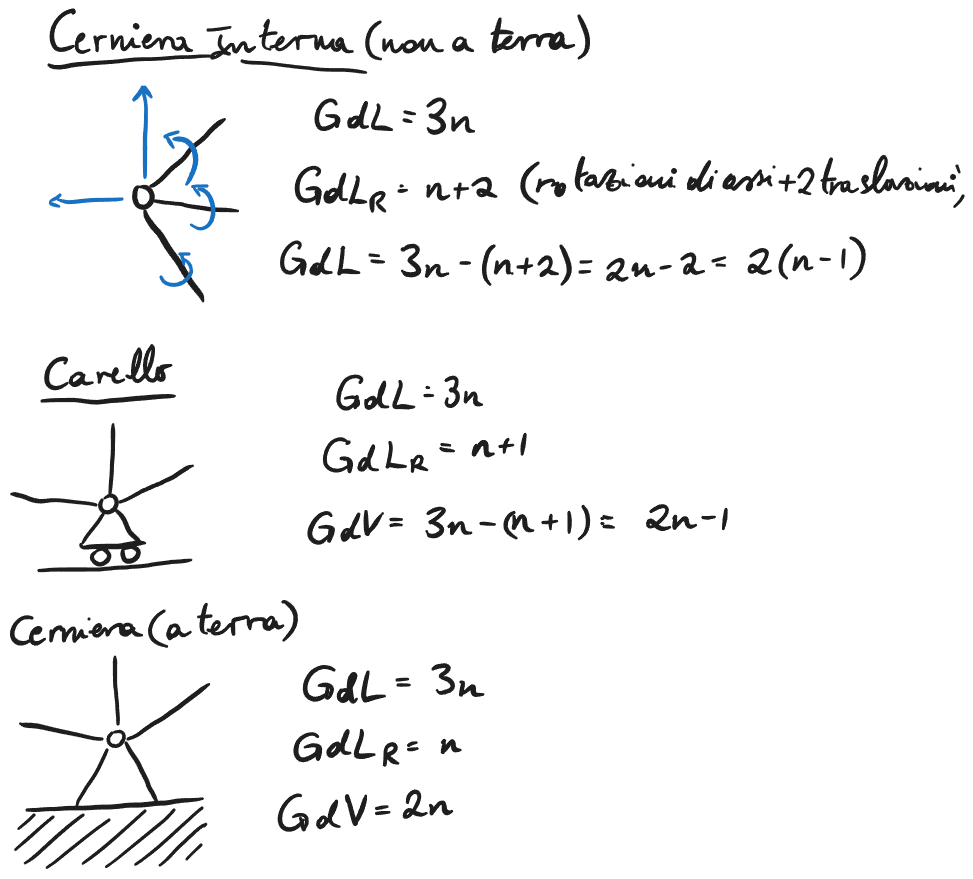 Cerniera Interna (non a terra)
GdL = 3n
GdL_R = n+2 (rotazioni di assi + 2 traslazioni)
GdL = 3n - (n+2) = 2n - 2 = 2(n-1)
Carello
GdL = 3n
GdL_R = n+1
GdV = 3n - (n+1) = 2n - 1
Cerniera (a terra)
GdL = 3n
GdL_R = n
GdV = 2n